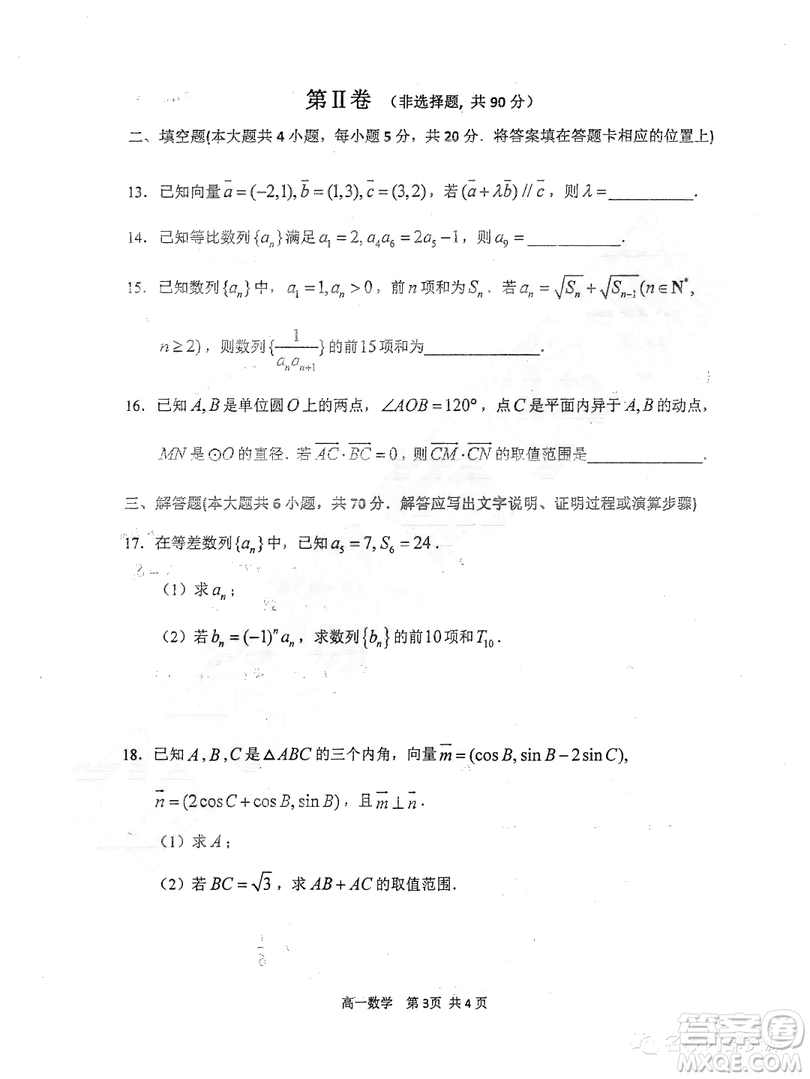 第Ⅱ卷 （非选择题, 共 90 分）
二、填空题(本大题共 4 小题，每小题 5 分，共 20 分．将答案填在答题卡相应的位置上)
13．已知向量 $\vec{a}=(-2,1),\vec{b}=(1,3),\vec{c}=(3,2)$，若 $(\vec{a}+\lambda\vec{b})//\vec{c}$，则 $\lambda=$__________．
14．已知等比数列 $\{a_n\}$ 满足 $a_1=2,a_4a_6=2a_5-1$，则 $a_9=$__________．
15．已知数列 $\{a_n\}$ 中，$a_1=1,a_n>0$，前 $n$ 项和为 $S_n$．若 $a_n=\sqrt{S_n}+\sqrt{S_{n-1}}(n\in\mathbf{N}^*,$
$n\geq2)$，则数列 $\{\frac{1}{a_na_{n+1}}\}$ 的前 15 项和为____________．
16．已知 $A,B$ 是单位圆 $O$ 上的两点，$\angle AOB=120°$，点 $C$ 是平面内异于 $A,B$ 的动点，
$MN$ 是 $\odot O$ 的直径．若 $\overrightarrow{AC}\cdot\overrightarrow{BC}=0$，则 $\overrightarrow{CM}\cdot\overrightarrow{CN}$ 的取值范围是____________．
三、解答题(本大题共 6 小题，共 70 分．解答应写出文字说明、证明过程或演算步骤)
17．在等差数列 $\{a_n\}$ 中，已知 $a_5=7,S_6=24$．
（1）求 $a_n$；
（2）若 $b_n=(-1)^na_n$，求数列 $\{b_n\}$ 的前 10 项和 $T_{10}$．
18．已知 $A,B,C$ 是 $\triangle ABC$ 的三个内角，向量 $\vec{m}=(\cos B,\sin B-2\sin C)$,
$\vec{n}=(2\cos C+\cos B,\sin B)$，且 $\vec{m}\perp\vec{n}$．
（1）求 $A$；
（2）若 $BC=\sqrt{3}$，求 $AB+AC$ 的取值范围．
高一数学 第 3页 共 4 页
答案圈
MXQE.COM